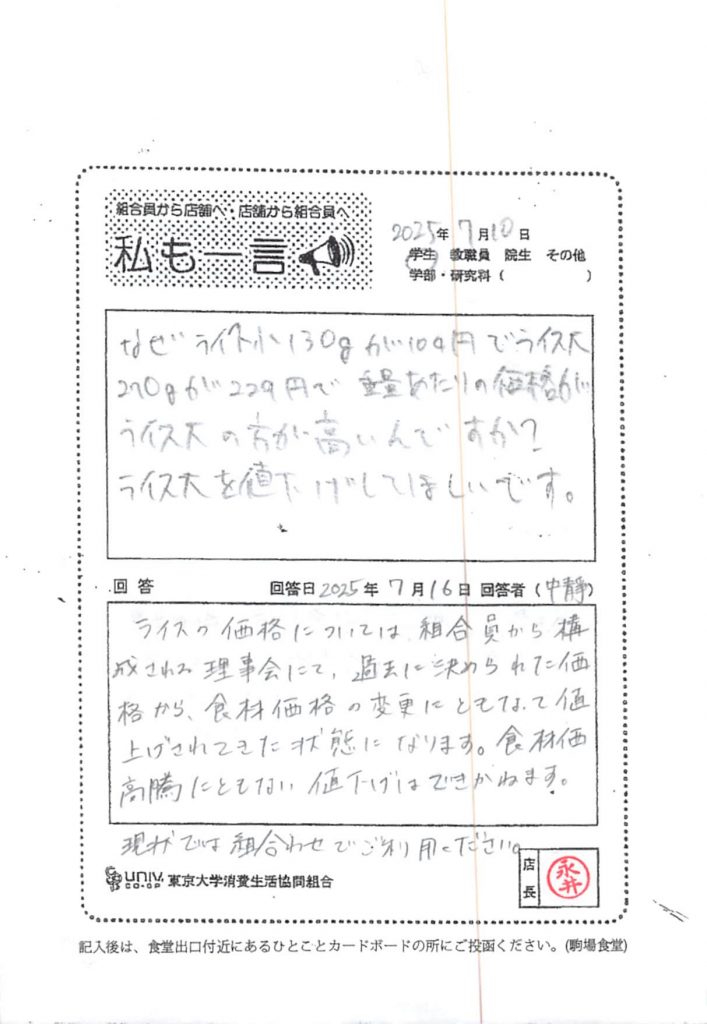 組合員から店舗へ・店舗から組合員へ
私も一言
2025年 7月10日
学生 教職員 院生 その他
学部・研究科（ ）
なぜライス小130gが104円でライス大
270gが229円で 重量あたりの価格が
ライス大の方が高いんですか?
ライス大を値下げしてほしいです。
回答 回答日2025年 7月16日 回答者（中静）
ライスの価格については、組合員から構
成される理事会にて、過去に決められた価
格から、食材価格の変更にともなって値
上げされてきた状態になります。食材価
高騰にともない値下げはできかねます。
現状では組合わせでご利用ください。
univ. co-op 東京大学消費生活協同組合
店長 永井
記入後は、食堂出口付近にあるひとことカードボードの所にご投函ください。(駒場食堂)